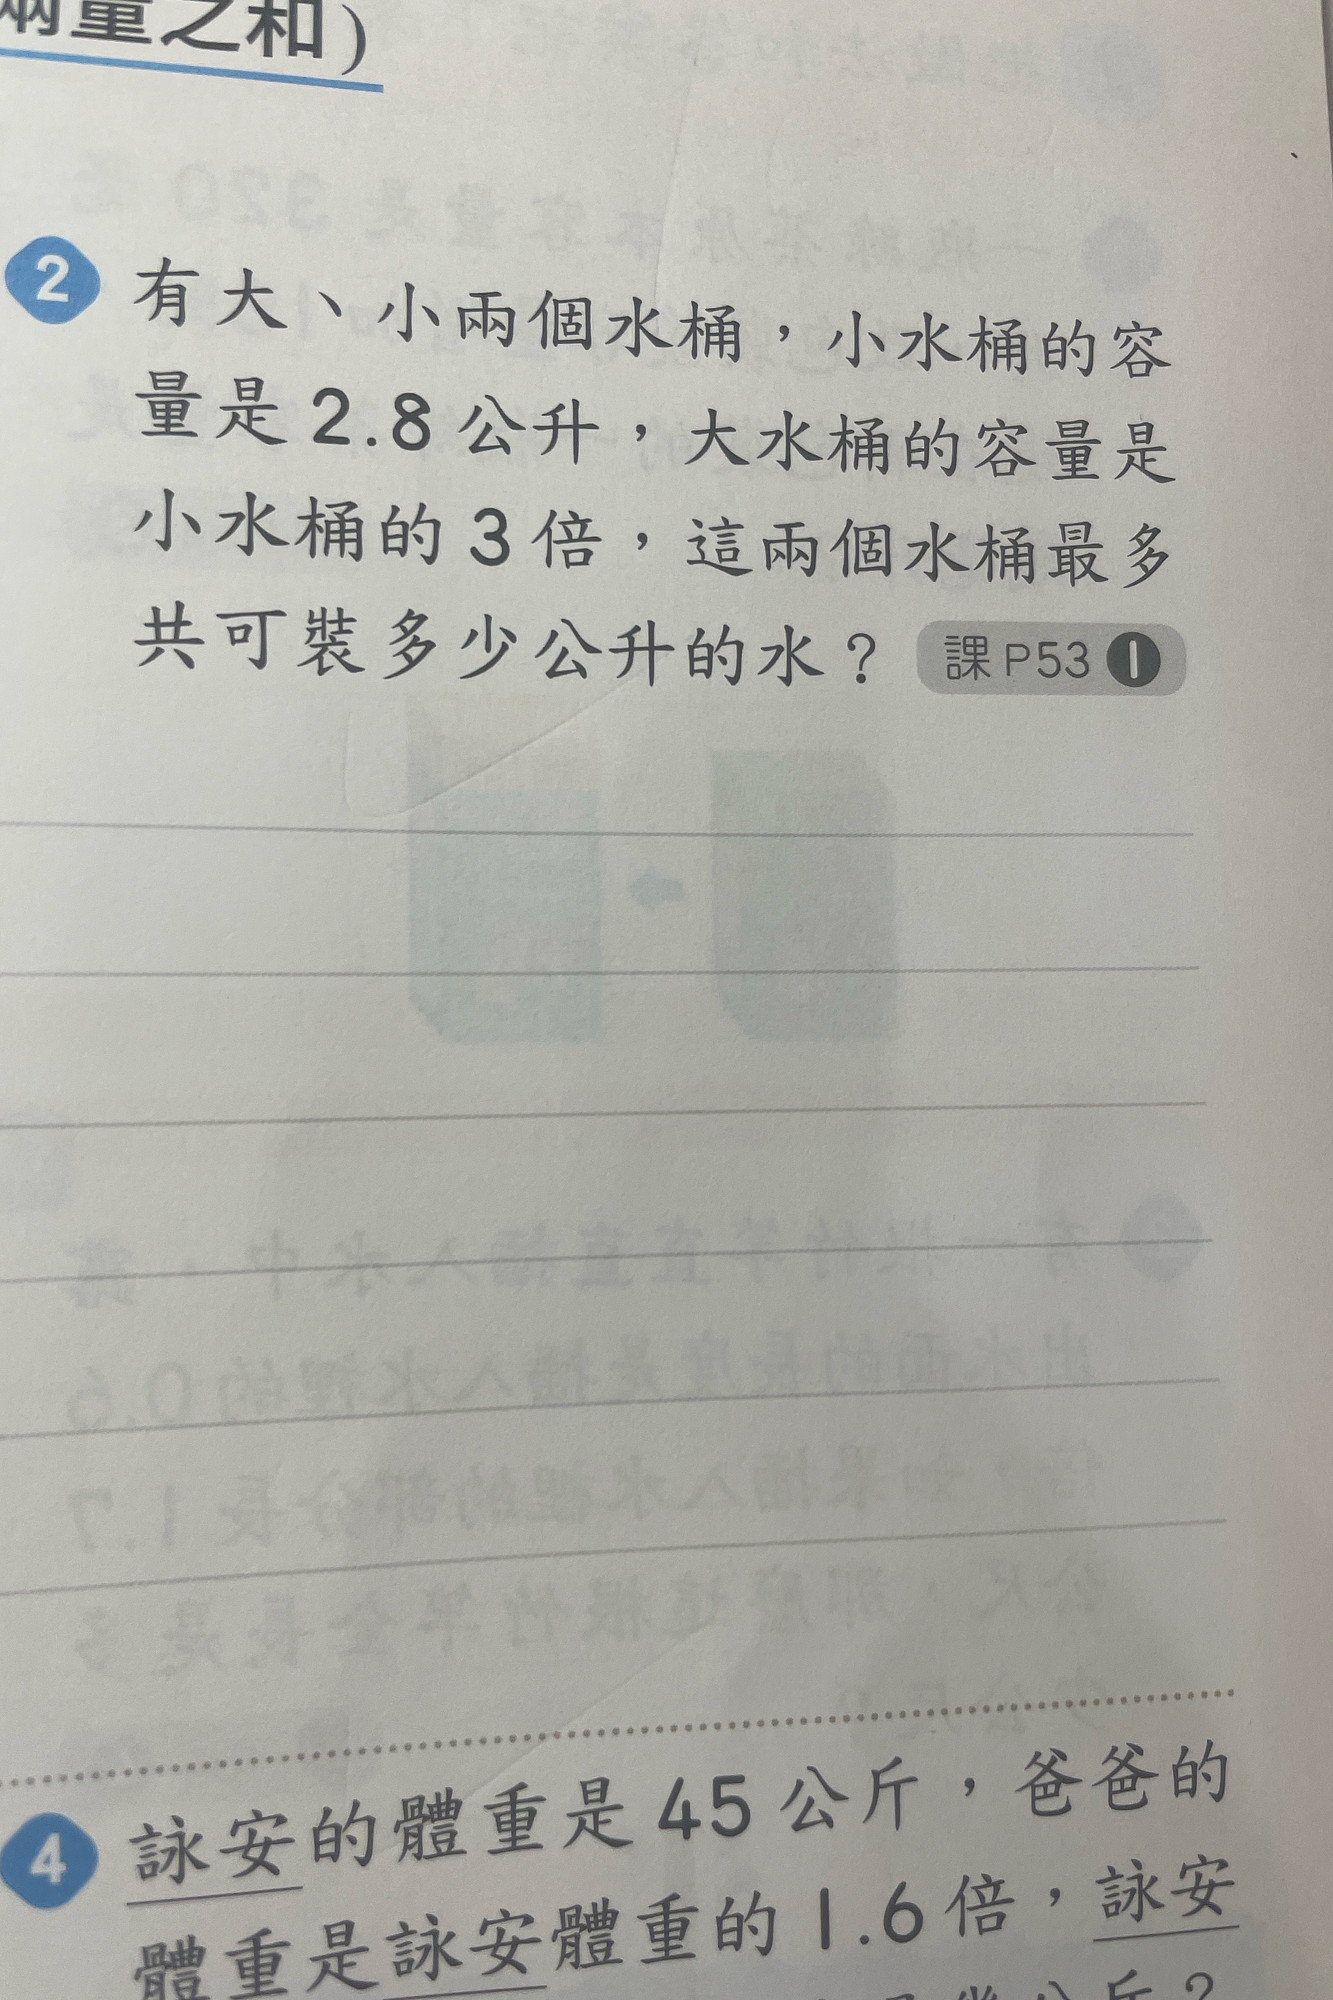 兩量之和)
2 有大、小兩個水桶，小水桶的容
量是2.8公升，大水桶的容量是
小水桶的3倍，這兩個水桶最多
共可裝多少公升的水？ 課P53 1
4 詠安的體重是45公斤，爸爸的
體重是詠安體重的1.6倍，詠安
幾公斤？